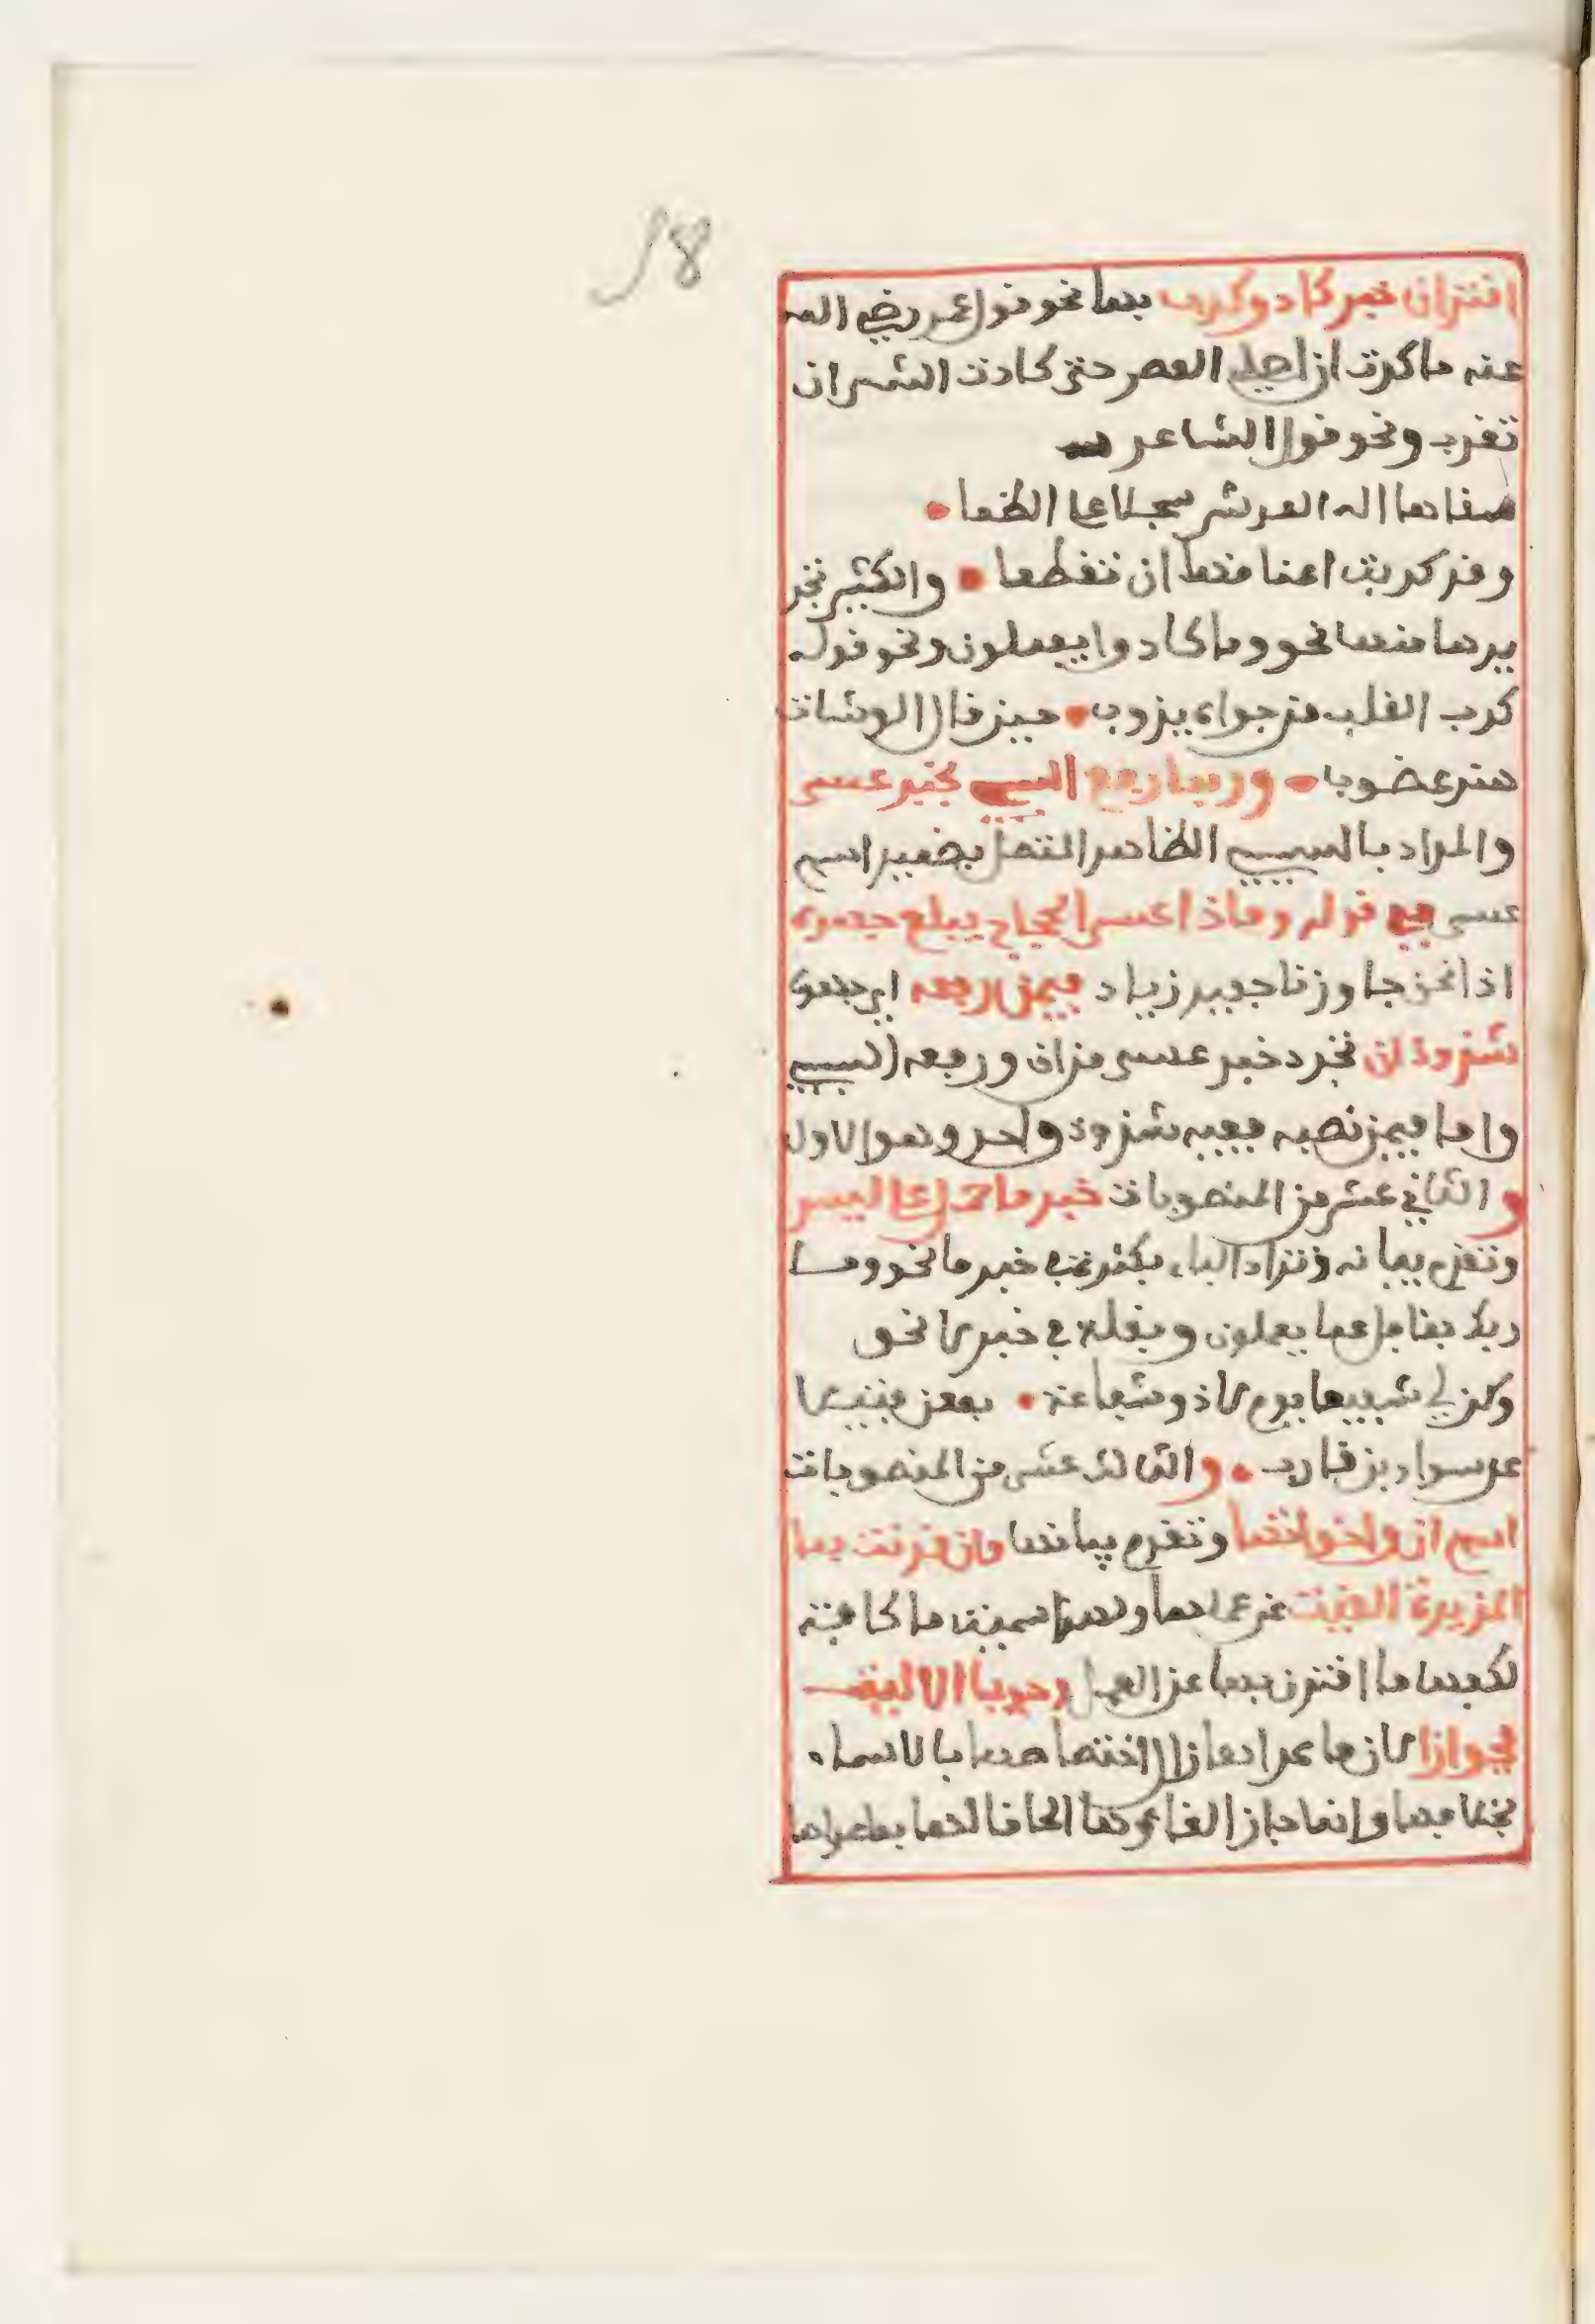 18
اقتران خبر كاد وكرب بها نحو قول عمر رضي الله
عنه ما كدت ان اصلي العصر حتى كادت الشمس ان
تغرب ونحو قول الشاعر
سقاها اله العرش سجلا على الظما
وقد كربت اعناقها ان تقطعا والكثير تجر
يدهما منها نحو وما كادوا يفعلون ونحو قوله
كرب القلب من جواه يذوب حين قال الوشات
هند غضوب وربما رفع السببي بخبر عسى
والمراد بالسببي الظاهر المتصل بضمير اسم
عسى ففي قوله وماذا عسى الحجاج يبلغ جهده
اذا نحن جاوزنا حفير زياد فيمن رفعه اي جهده
شذوذان تجرد خبر عسى من ان ورفعه السببي
واما فيمن نصبه ففيه شذوذ واحد وهو الاول
والثاني عشر من المنصوبات خبر ما حمل على ليس
وتقدم بيانه وتزاد الباء بكثرة في خبر ما نحو وما
ربك بغافل عما يعملون وبقلة في خبر لا نحو
وكن لي شفيعا يوم لا ذو شفاعة بمغن فتيلا
عن سواد بن قارب والثالث عشر من المنصوبات
اسم ان واخواتها وتقدم بيانها فان قرنت بما
المزيدة الغيت عن عملها ولهذا سميت ما كافة
لكفها ما اقترن بها عن العمل وجوبا الا ليت
فجوازا لان ما عداها زال اختصاصها بالاسماء
بخلافها وانما جاز الغاءها الحاقا لها بما عداها